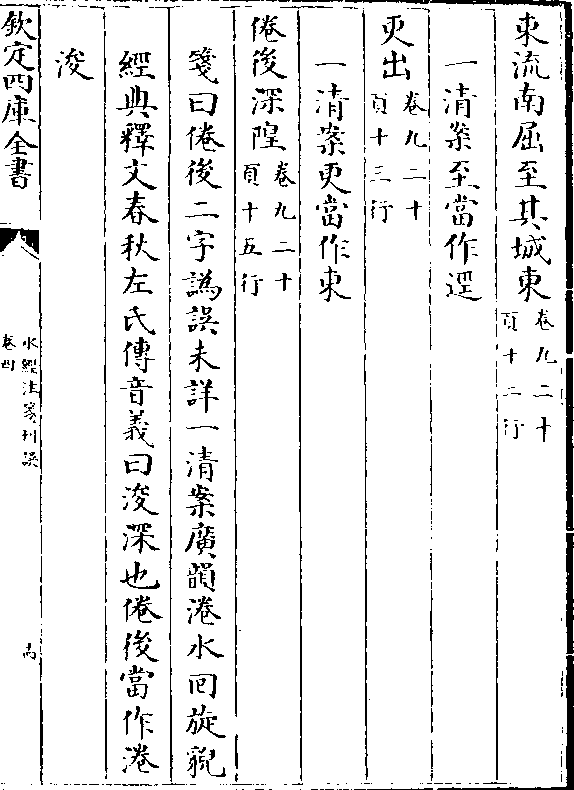 東流南屈至其城東卷九二十頁十二行
一清案至當作逕
更出卷九二十頁十三行
一清案更當作東
倦後深隍卷九二十頁十五行
箋曰倦後二字譌誤未詳一清案廣韻淃水囘旋貌
經典釋文春秋左氏傳音義曰浚深也倦後當作淃
浚
欽定四庫全書
水經注箋刊誤
卷四